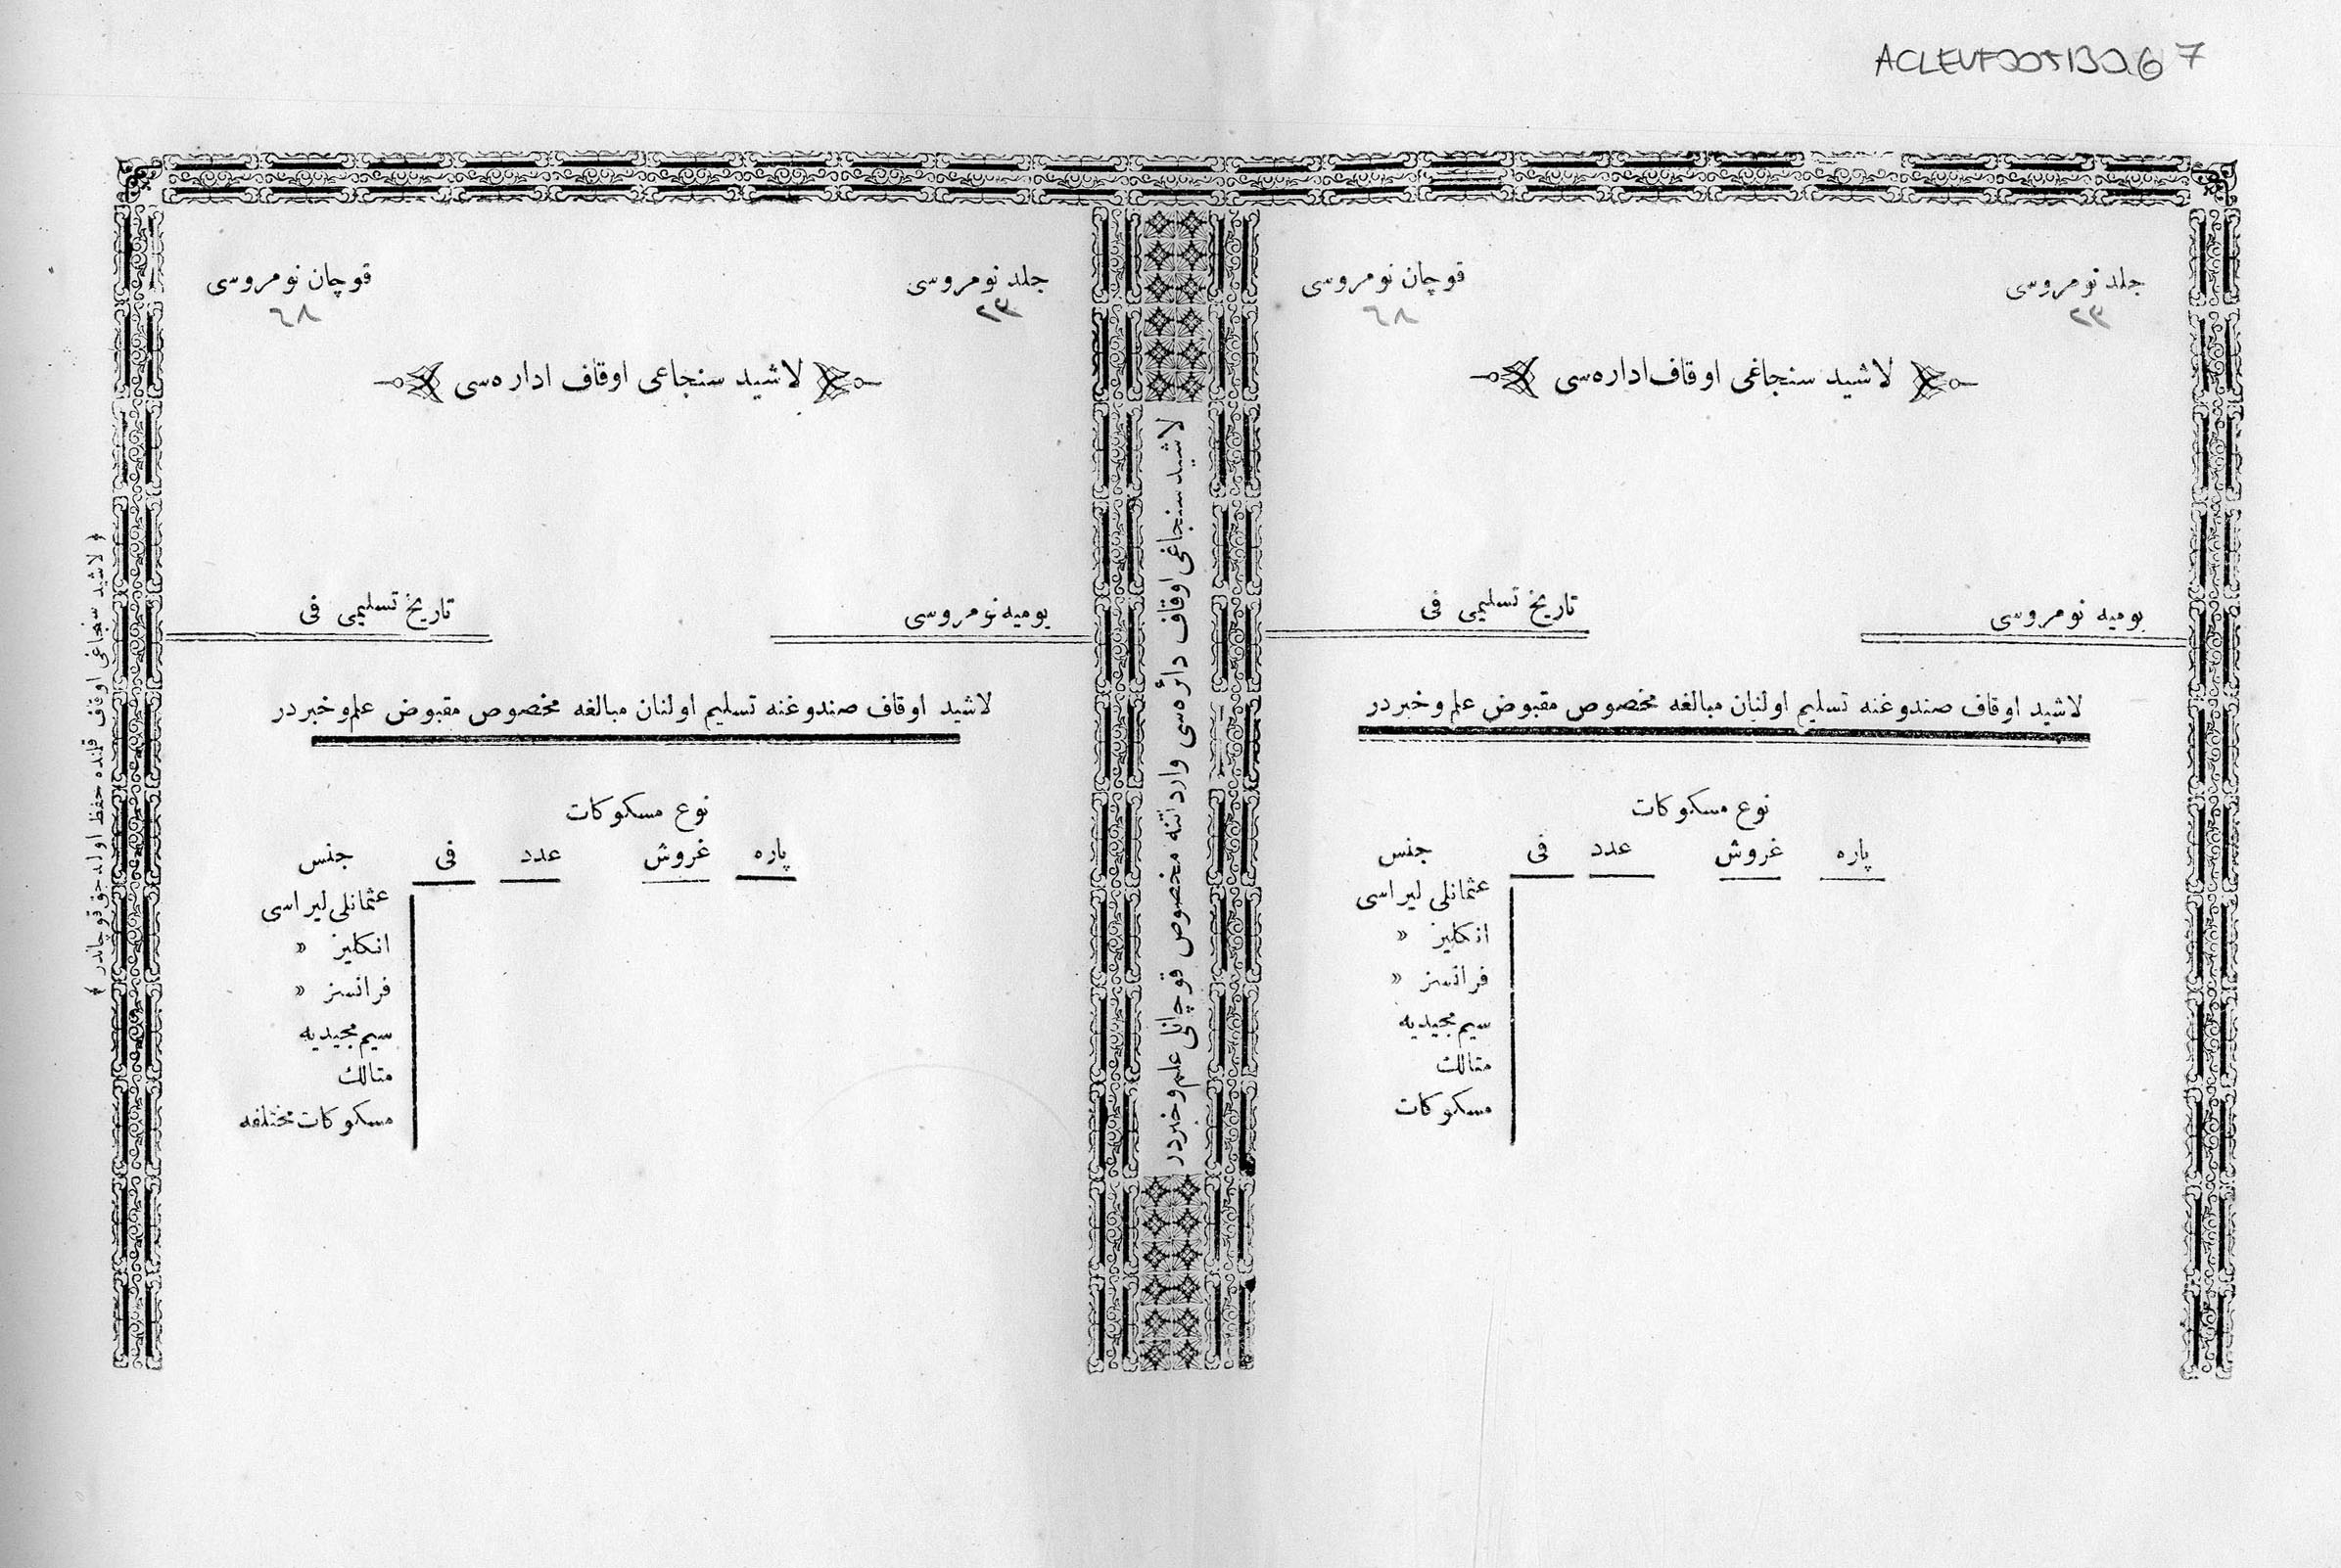 ACLEVF00513067
جلد نومروسی
٢٣
قوچان نومروسی
٦٨
لاشید سنجاغی اوقاف اداره‌سی
یومیه نومروسی
تاریخ تسلیمی فی
لاشید اوقاف صندوغنه تسلیم اولنان مبالغه مخصوص مقبوض علم و خبردر
نوع مسکوکات
پاره غروش عدد فی جنس
عثمانلی لیراسی
انکلیز »
فرانسز »
سیم مجیدیه
متالك
مسکوکات
لاشید سنجاغی اوقاف دائره‌سی وارداتنه مخصوص قوچانلی علم و خبردر
جلد نومروسی
٢٣
قوچان نومروسی
٦٨
لاشید سنجاغی اوقاف اداره‌سی
یومیه نومروسی
تاریخ تسلیمی فی
لاشید اوقاف صندوغنه تسلیم اولنان مبالغه مخصوص مقبوض علم و خبردر
نوع مسکوکات
پاره غروش عدد فی جنس
عثمانلی لیراسی
انکلیز »
فرانسز »
سیم مجیدیه
متالك
مسکوکات مختلفه
﴿ لاشید سنجاغی اوقاف قلنده حفظ اولنه‌جق قوچاندر ﴾